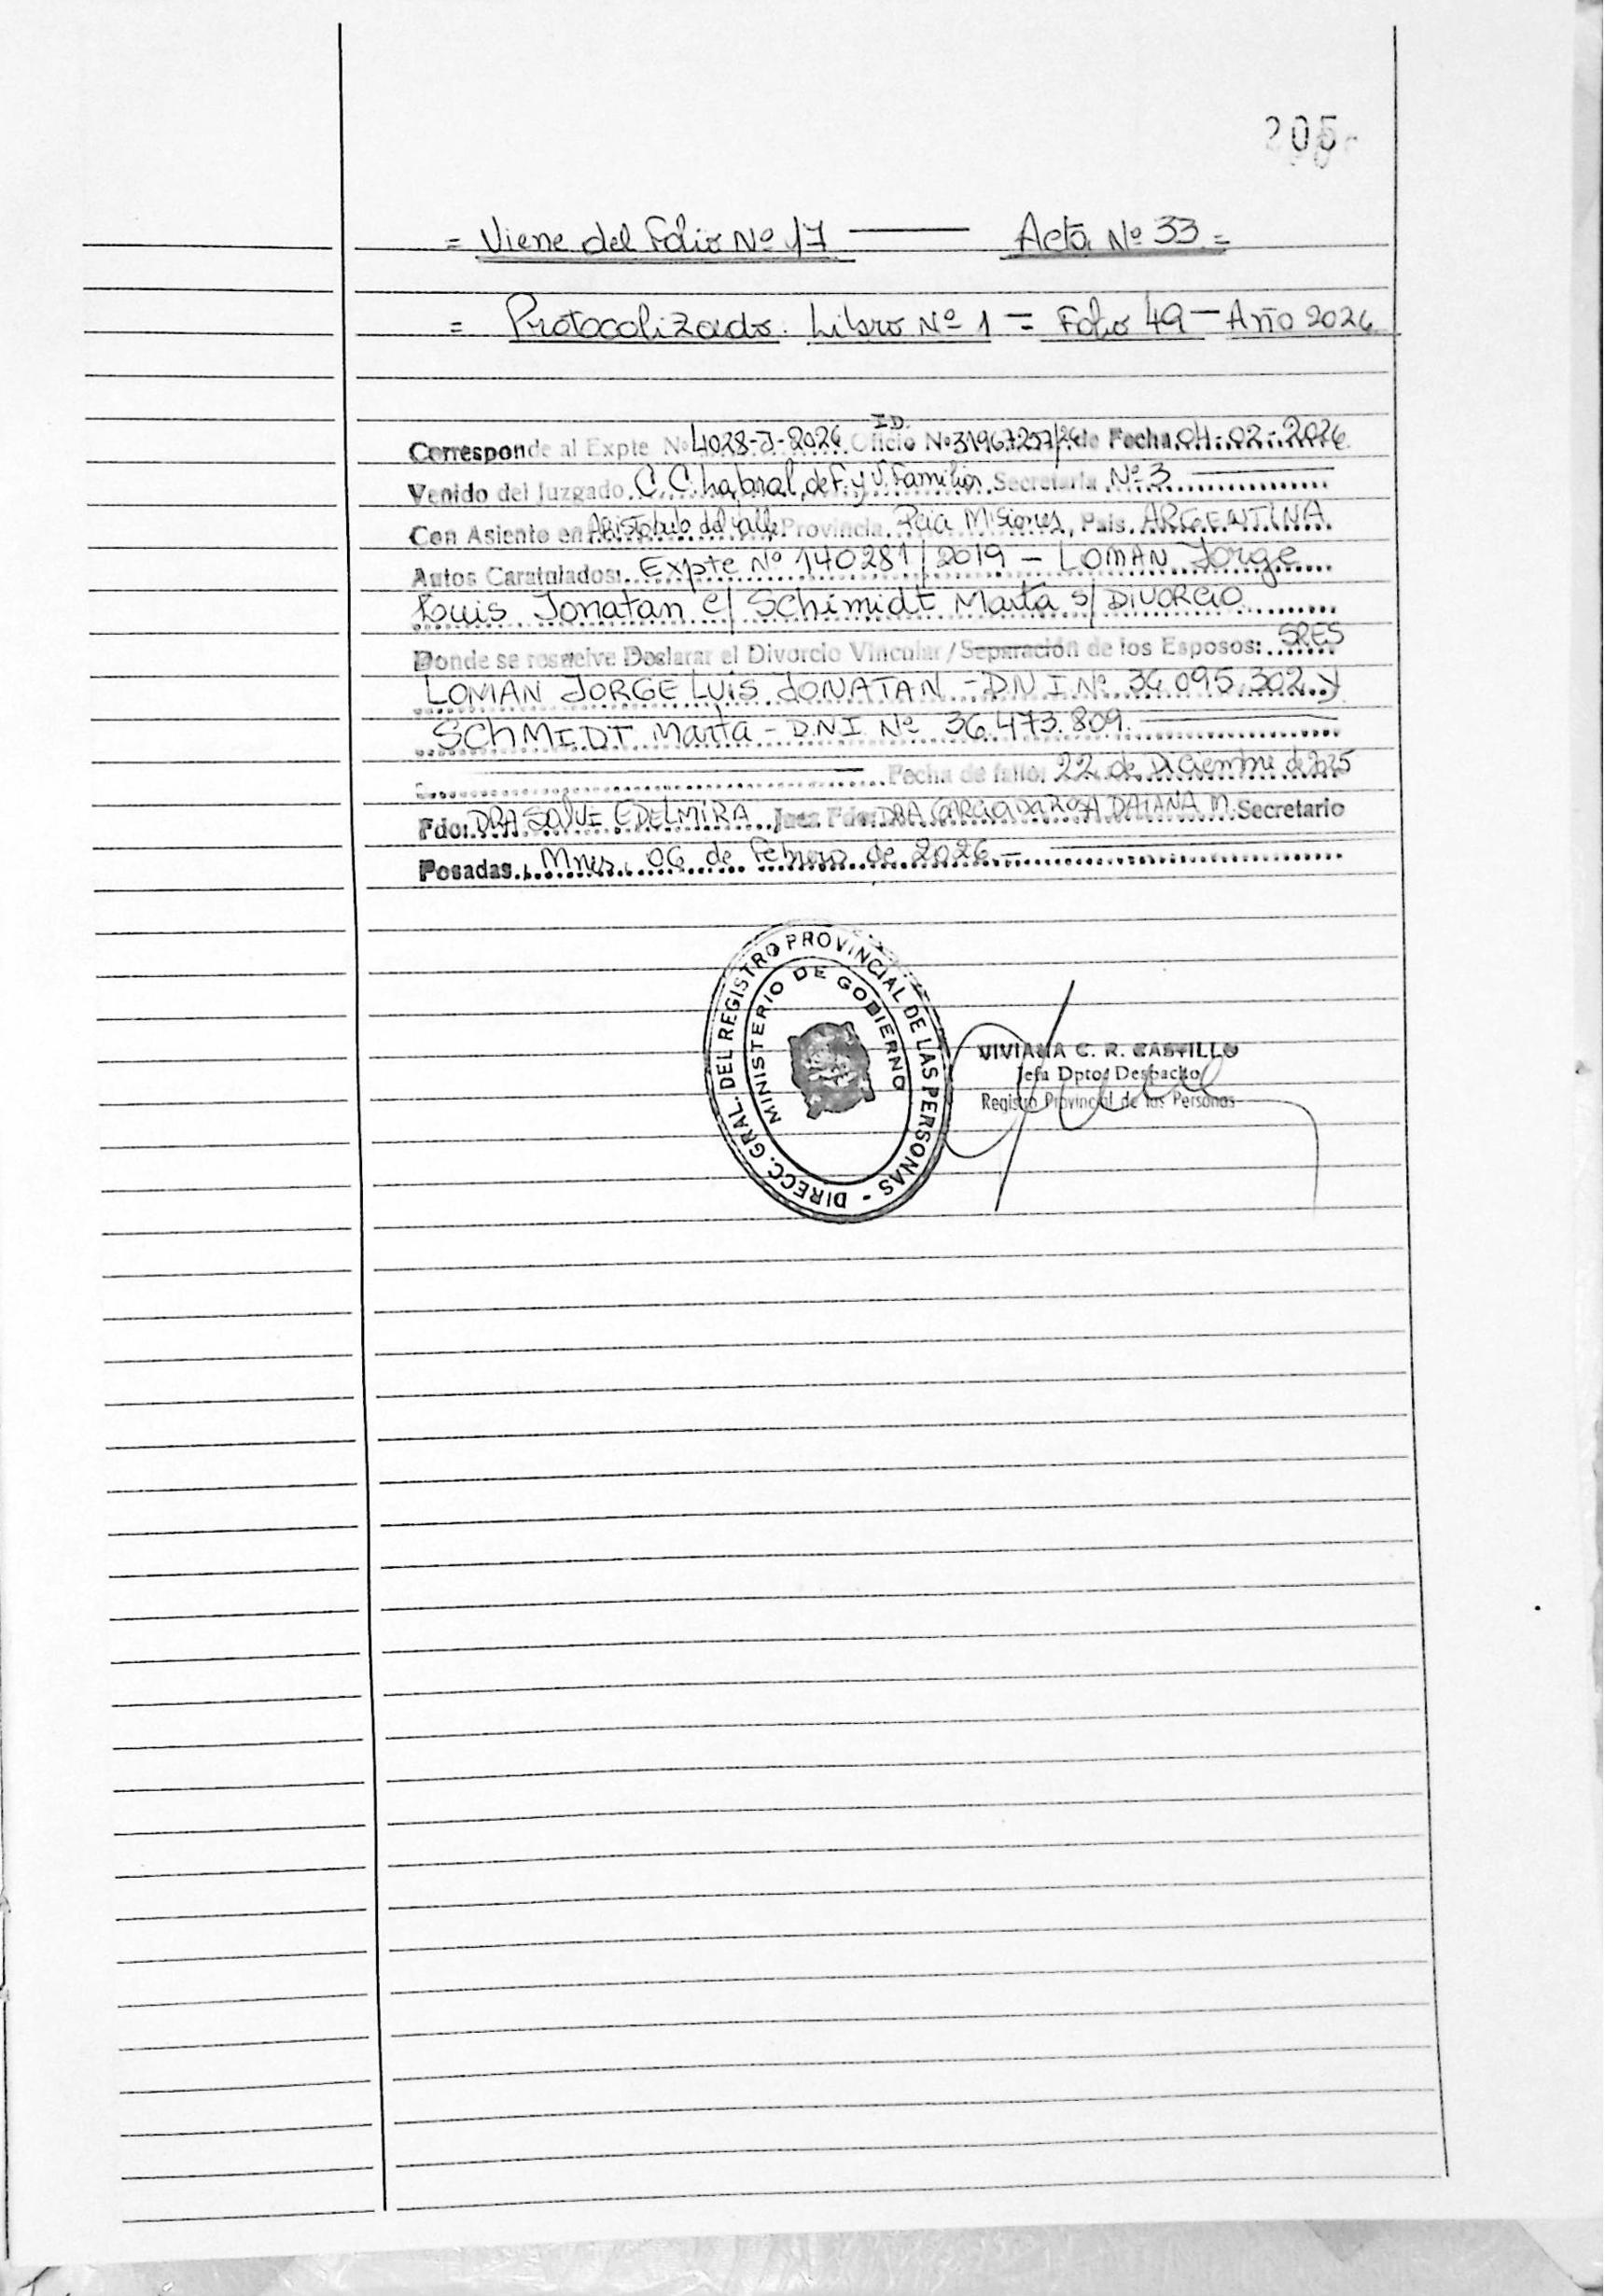 205
= Viene del Folio Nº 17 — Acta Nº 33 =
= Protocolizado. Libro Nº 1 = Folio 49 - Año 2026
I.D.
Corresponde al Expte Nº 4028-J-2026 Oficio Nº 31967257/26 de Fecha 04-02-2026
Venido del Juzgado C.C. Labral, de F. y V. Familiar Secretaria Nº 3
Con Asiento en Aristobulo del Valle Provincia Pcia Misiones, Pais ARGENTINA
Autos Caratulados: Expte Nº 140281/2019 - LOMAN Jorge
Luis Jonatan c/ Schimidt Marta s/ DIVORCIO
Donde se resuelve Declarar el Divorcio Vincular/Separación de los Esposos: SRES
LOMAN JORGE LUIS JONATAN - D.N.I. Nº 36.095.302 y
SCHMIDT Marta - D.N.I. Nº 36.473.809.
Fecha de fallo: 22 de Diciembre de 2025
Fdo: DRA SALVI EDELMIRA Juez Fdo: DRA GARCIA DA ROSA DAIANA M. Secretario
Posadas, Mnes, 06 de Febrero de 2026 -
DIRECC. GRAL. DEL REGISTRO PROVINCIAL DE LAS PERSONAS -
MINISTERIO DE GOBIERNO
VIVIANA C. R. CASTILLO
Jefa Dpto. Despacho
Registro Provincial de las Personas